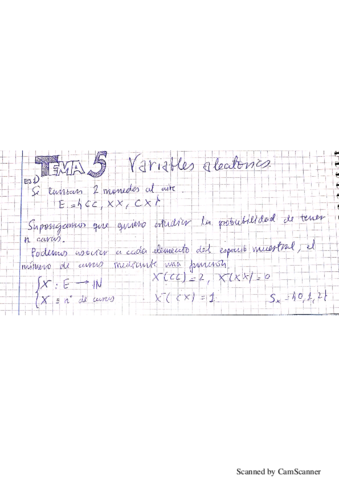 TEMA 5 Variables aleatorias
EJ)
Si lanzan 2 monedas al aire.
E = {CC, XX, CX}
Supongamos que quiero estudiar la probabilidad de tener
n caras.
Podemos asociar a cada elemento del espacio muestral, el
número de caras mediante una función.
X : E → IN X(CC)=2, X(XX)=0
X = nº de caras X(CX)=1 Sx = {0,1,2}
Scanned by CamScanner